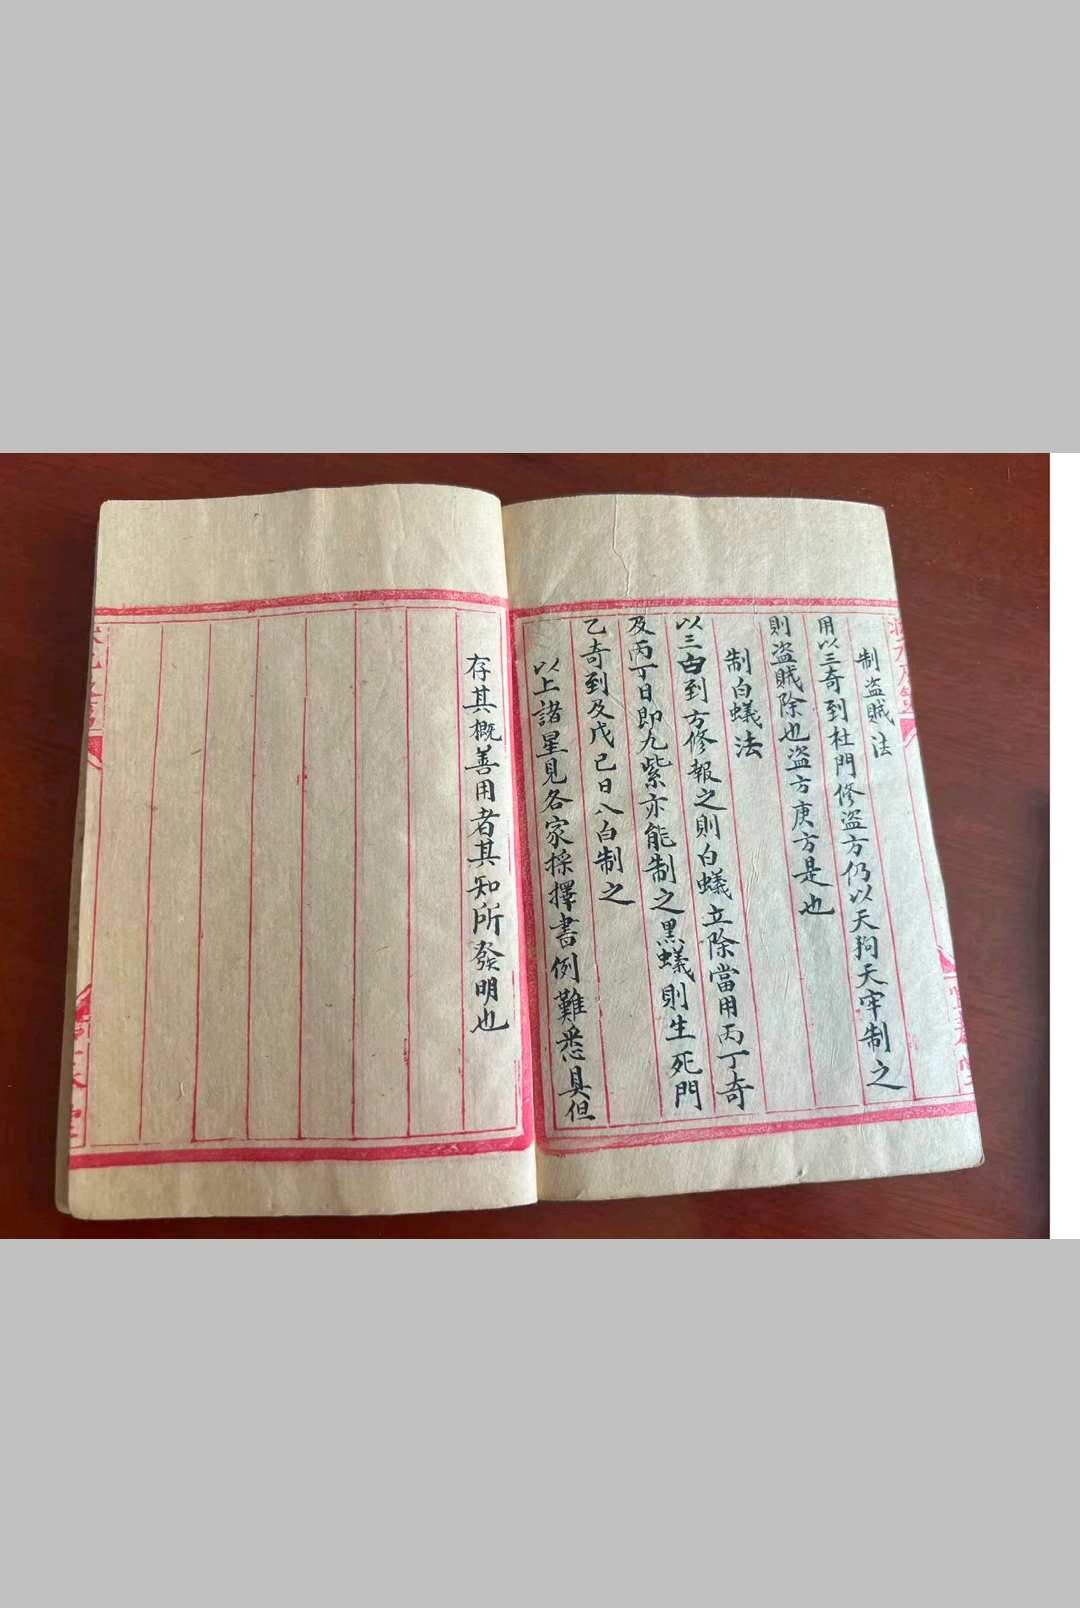 制盜賊法
用以三奇到杜門修盜方仍以天狗天牢制之
則盜賊除也盜方庚方是也
制白蟻法
以三白到方修報之則白蟻立除當用丙丁奇
及丙丁日即九紫亦能制之黑蟻則生死門
乙奇到及戊己日八白制之
以上諸星見各家採擇書例難悉具但
存其概善用者其知所發明也